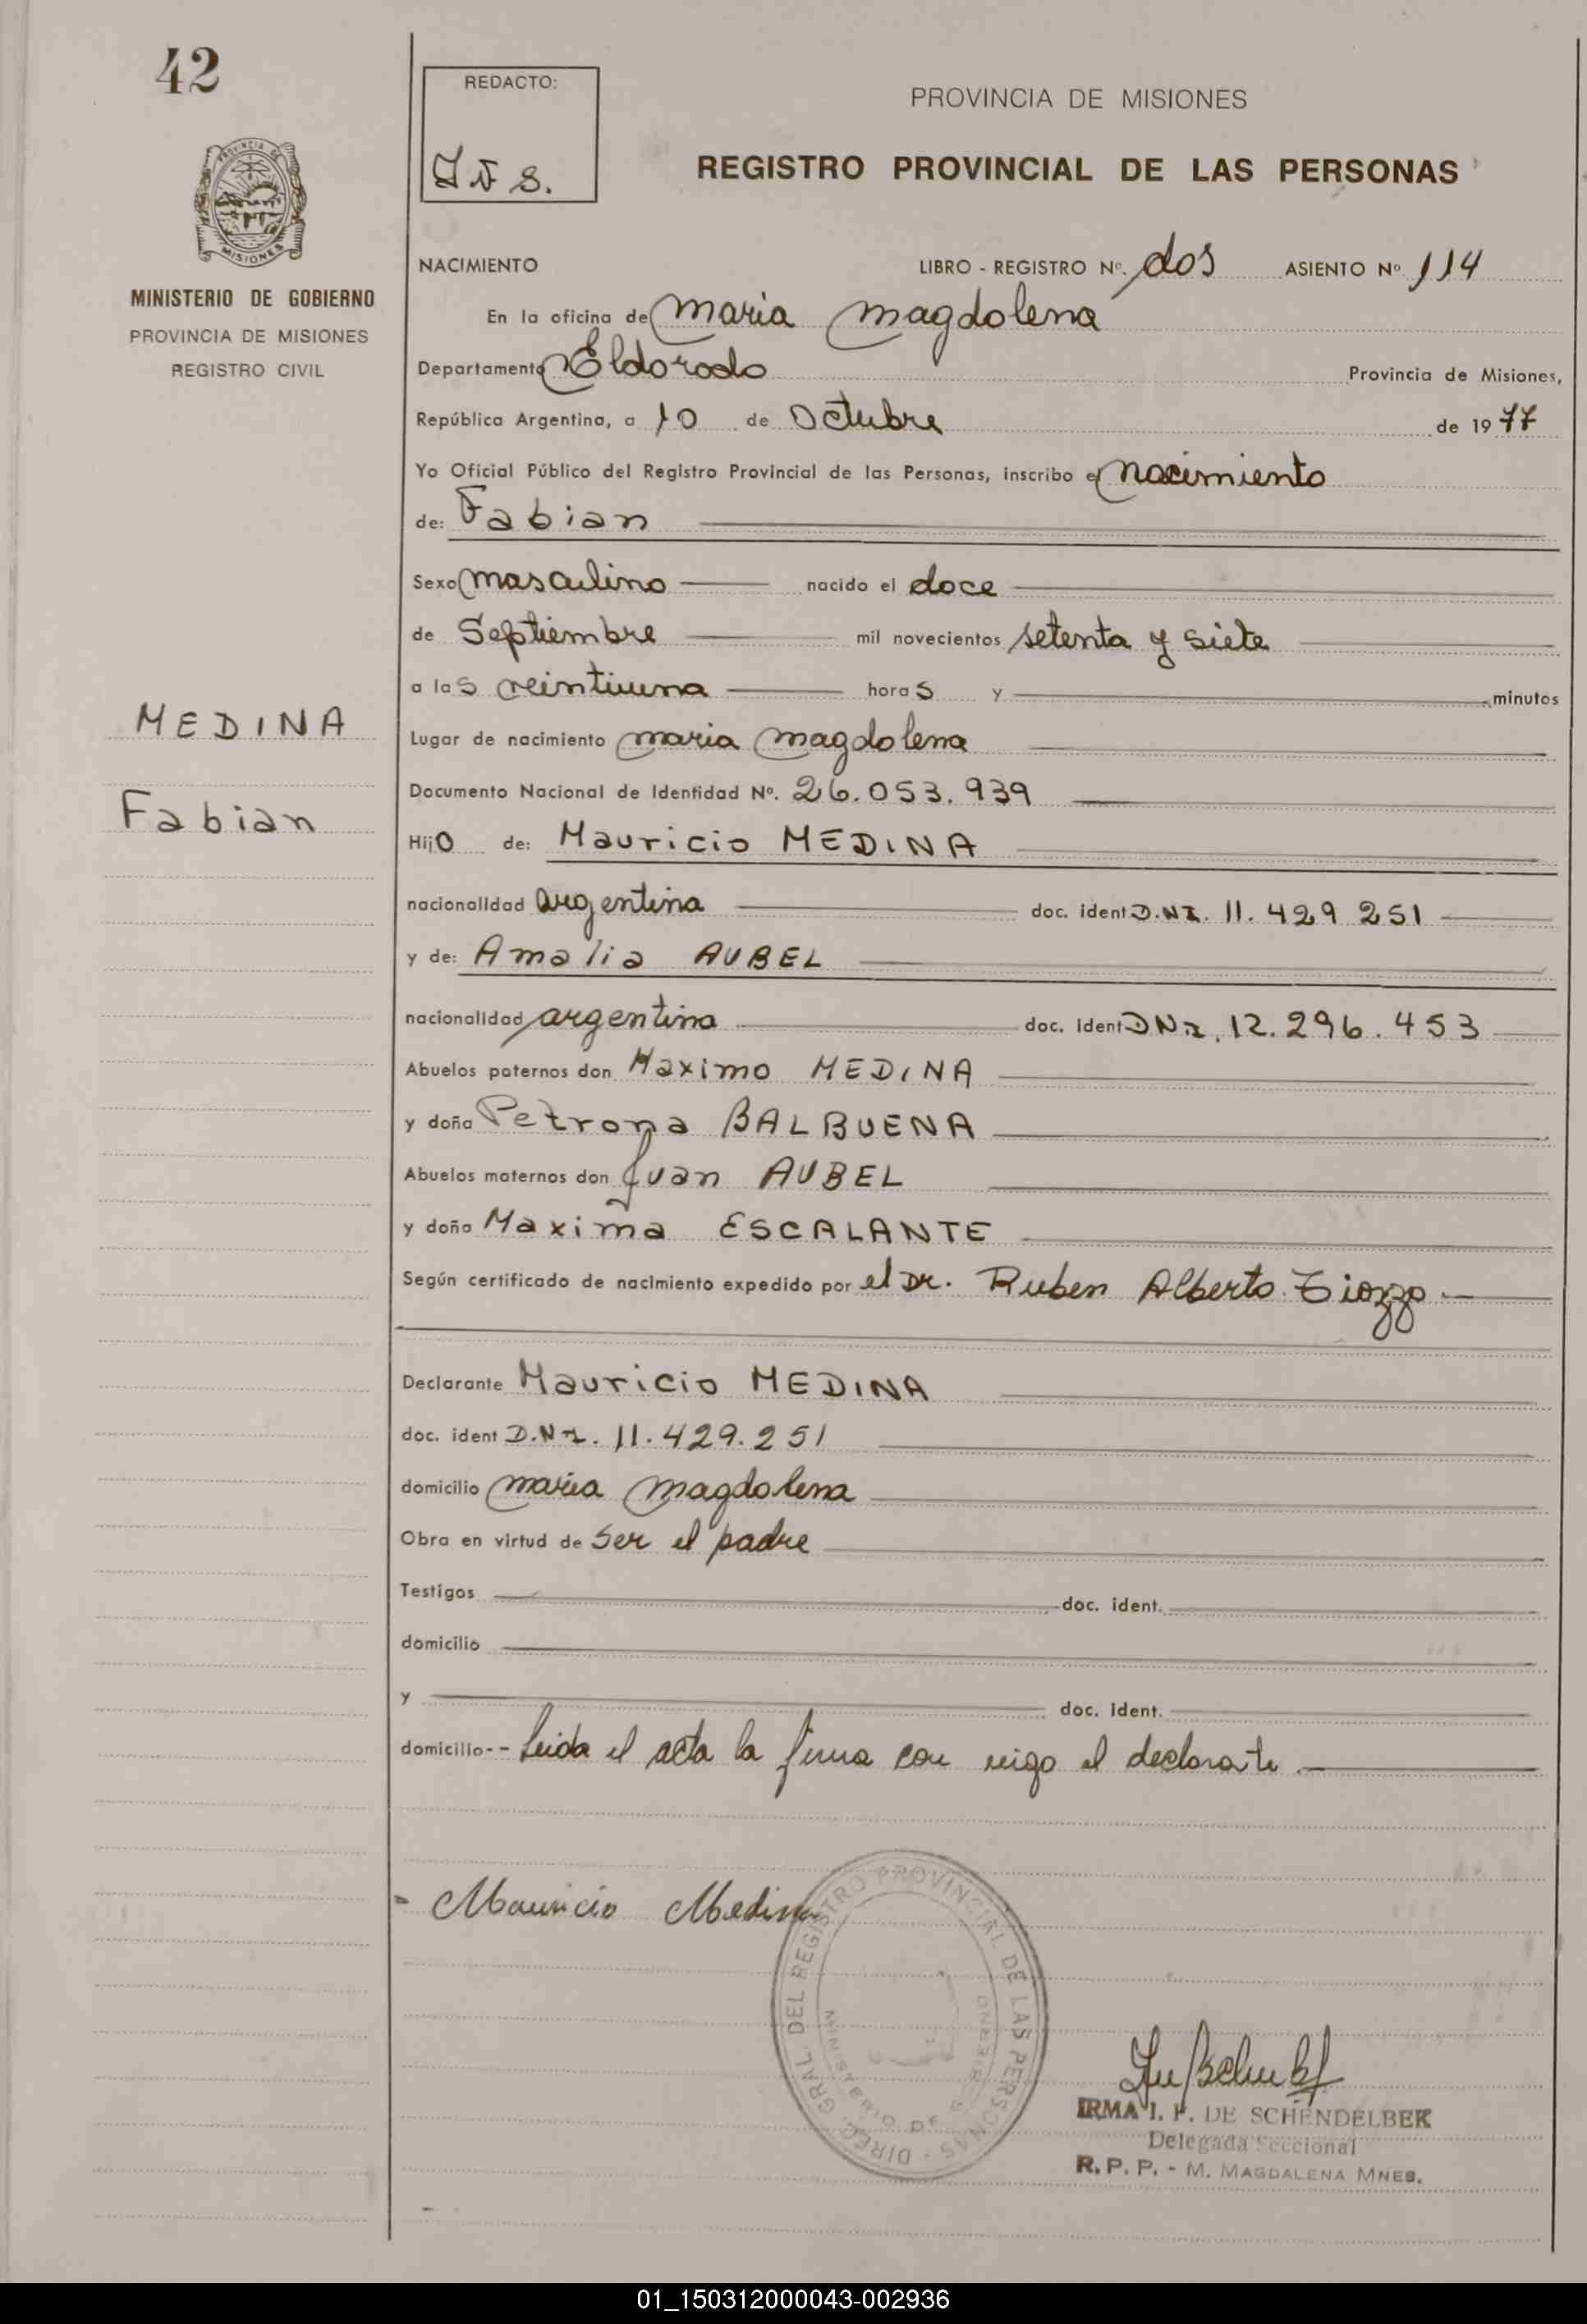 42
REDACTO:
PROVINCIA DE MISIONES
REGISTRO PROVINCIAL DE LAS PERSONAS
PROVINCIA DE
MISIONES
MINISTERIO DE GOBIERNO
PROVINCIA DE MISIONES
REGISTRO CIVIL
NACIMIENTO LIBRO - REGISTRO Nº. dos ASIENTO Nº 114
En la oficina de maria magdalena
Departamento Eldorado Provincia de Misiones,
República Argentina, a 10 de Octubre de 1977
Yo Oficial Público del Registro Provincial de las Personas, inscribo el nacimiento
de: Fabian
Sexo masculino nacido el doce
de Septiembre mil novecientos setenta y siete
a las veintiuna horas y minutos
MEDINA
Lugar de nacimiento maria magdalena
Documento Nacional de Identidad Nº. 26.053.939
Fabian
Hijo de: Mauricio MEDINA
nacionalidad argentina doc. ident D.N.I. 11.429 251
y de: Amalia AUBEL
nacionalidad argentina doc. ident DNI. 12.296.453
Abuelos paternos don Maximo MEDINA
y doña Petrona BALBUENA
Abuelos maternos don Juan AUBEL
y doña Maxima ESCALANTE
Según certificado de nacimiento expedido por el Dr. Ruben Alberto Tiozzo
Declarante Mauricio MEDINA
doc. ident D.N.I. 11.429.251
domicilio maria magdalena
Obra en virtud de ser el padre
Testigos doc. ident.
domicilio
y doc. ident.
domicilio-- Leida el acta la firma con migo el declarante
Mauricio Medina
DIREC. GRAL. DEL REGISTRO PROVINCIAL DE LAS PERSONAS -
MINISTERIO DE GOBIERNO
IRMA I. F. DE SCHENDELBEK
Delegada Seccional
R. P. P. - M. MAGDALENA MNES.
01_150312000043-002936